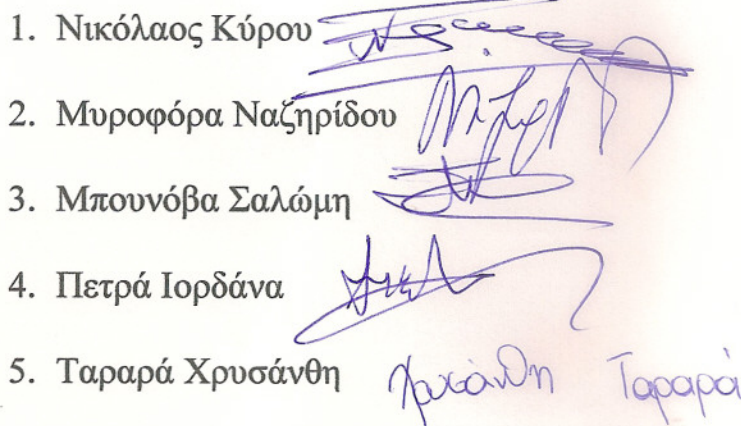 1. Νικόλαος Κύρου
2. Μυροφόρα Ναζηρίδου
3. Μπουνόβα Σαλώμη
4. Πετρά Ιορδάνα
5. Ταραρά Χρυσάνθη Χρυσάνθη Ταραρά